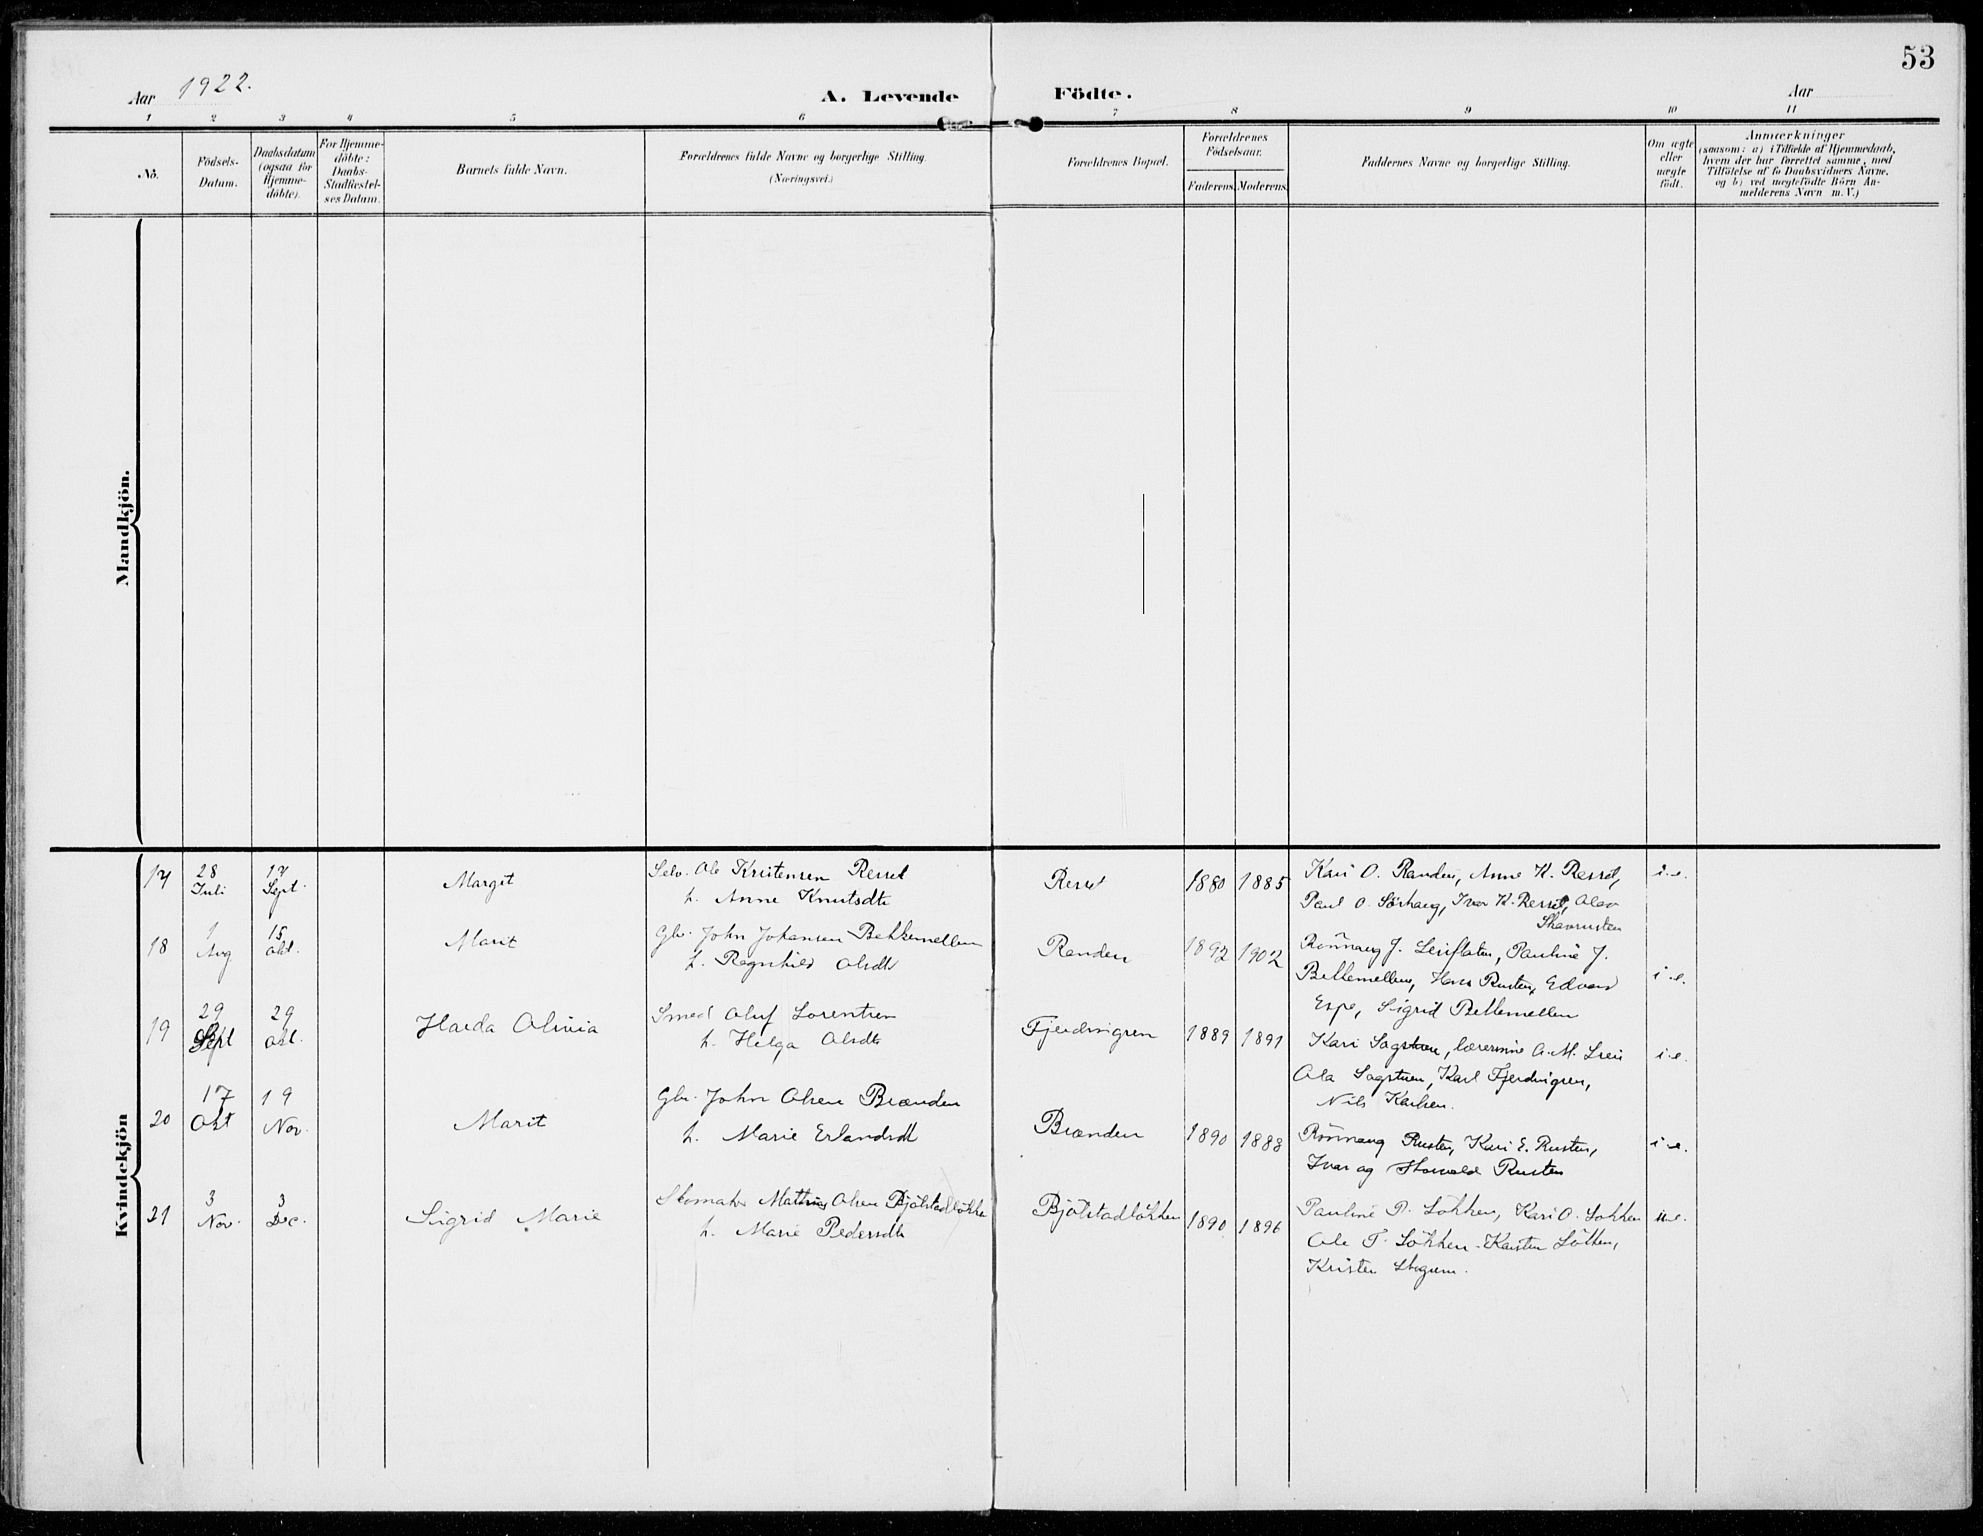 53
Aar 1922.
A. Levende Födte.
Aar
1 2 3 4 5 6 7 8 9 10 11
No.
Födsels-
Datum.
Daabsdatum
(ogsaa for
Hjemme-
döbte).
For Hjemme-
döbte:
Daabs-
Stadfæstel-
ses Datum.
Barnets fulde Navn.
Forældrenes fulde Navne og borgerlige Stilling.
(Næringsvei.)
Forældrenes Bopæl.
Forældrenes
Födselsaar.
Faderens. Moderens.
Faddernes Navne og borgerlige Stilling.
Om ægte
eller
uægte
födt.
Anmærkninger
(saasom: a) i Tilfælde af Hjemmedaab,
hvem der har forrettet samme, med
Tilföielse af to Daabsvidners Navne,
og b) ved uægtefödte Börn An-
melderens Navn m. V.)
Mandkjön.
Kvindekjön
17 28 Juli 17 Sept. Margit
Selv. Ole Kristensen
h. Anne Knutsdtr
1880 1885
Kari O. Randen, Anne K.
Paul O. Sörhaug, Ivar K.
i.e.
18 1 Aug. 15 Okt. Marit
Gbr. John Johansen Bekkemellem
h. Ragnhild Olsdtr
Randen 1892 1902
Rönnaug J. Pauline J.
Bekkemellem, Hans Rusten, Edvard
Espe, Sigrid Bekkemellem
i.e.
19 29 Sept 29 Okt. Olivia
Smed Oluf Lorentsen
h. Helga Olsdtr
Fjerdingren 1889 1891
Kari Sagstuen, lærerinne A. M.
Ola Sagstuen, Karl Fjerdingren,
Nils Karlsen.
i.e.
20 17 Okt 19 Nov. Marit
Gbr. John Olsen Brænden
h. Marie Erlandsdt
Brænden 1890 1888
Rönnaug Rusten, Kari E. Rusten,
Ivar og Rusten
i.e.
21 3 Nov. 3 Dec. Sigrid Marie
Skomaker Mathias Olsen Bjölstadløkken
h. Marie Pedersdtr
Bjölstadlökken 1890 1896
Pauline P. Lökken, Kari O. Lökken
Ole T. Lökken. Karsten Lökken,
Kristen